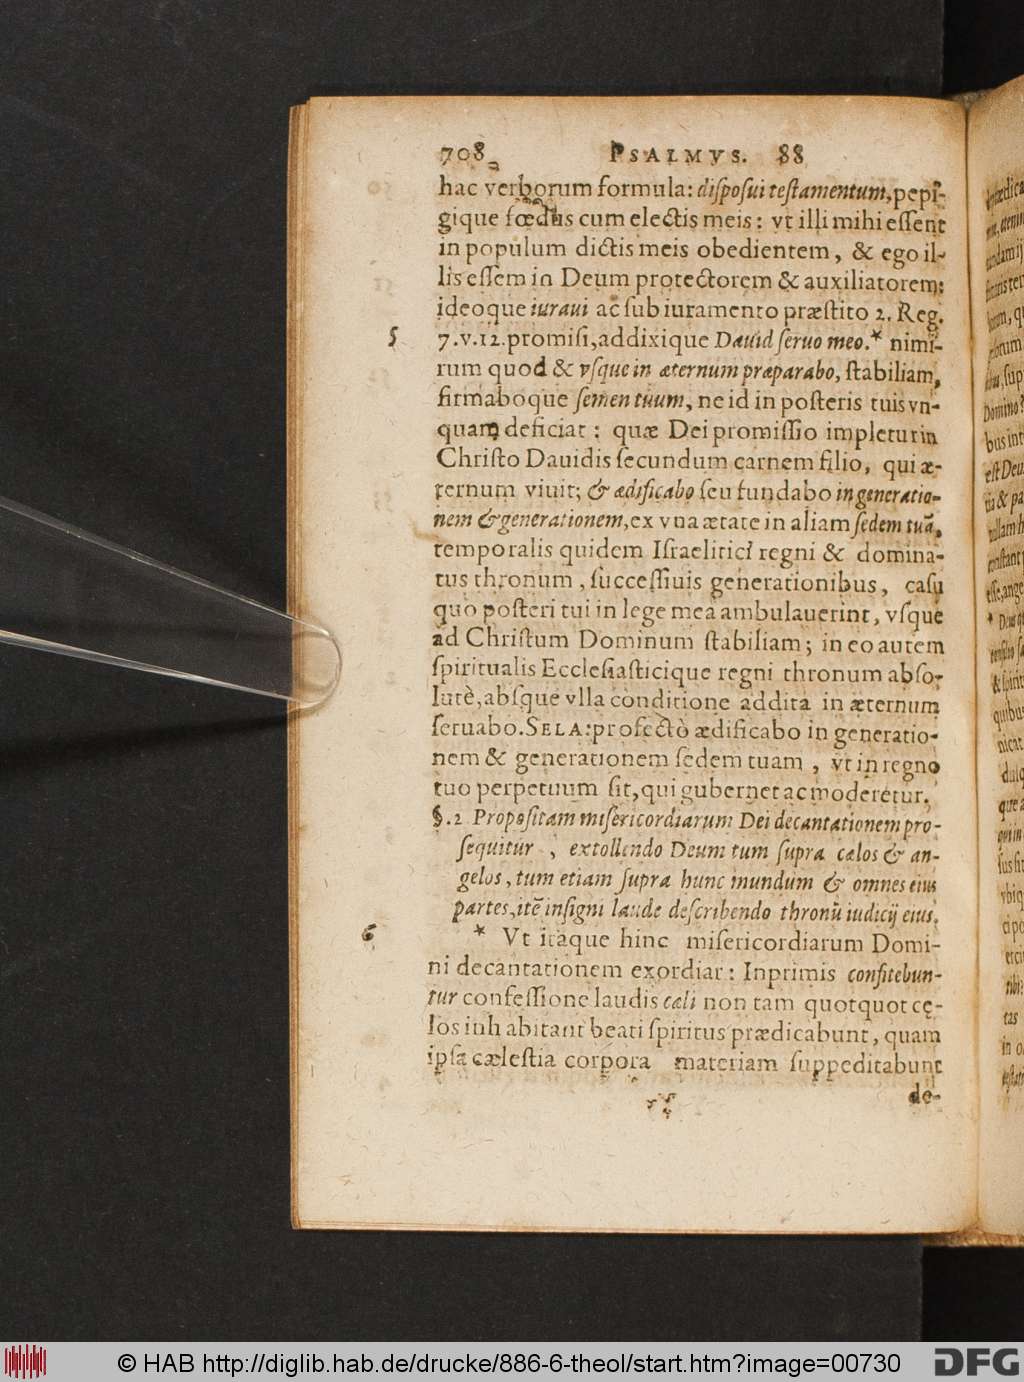 708 PSALMVS. 88
hac verborum formula: disposui testamentum, pepi-
gique fœdus cum electis meis: vt illi mihi essent
in populum dictis meis obedientem, & ego il-
lis essem in Deum protectorem & auxiliatorem:
ideoque iuraui ac sub iuramento præstito 2. Reg.
5 7.v.12. promisi, addixique Dauid seruo meo.* nimi-
rum quod & vsque in æternum præparabo, stabiliam,
firmaboque semen tuum, ne id in posteris tuis vn-
quam deficiat: quæ Dei promissio impletur in
Christo Dauidis secundum carnem filio, qui æ-
ternum viuit; & ædificabo seu fundabo in generatio-
nem & generationem, ex vna ætate in aliam sedem tuã,
temporalis quidem Israelitici regni & domina-
tus thronum, successiuis generationibus, casu
quo posteri tui in lege mea ambulauerint, vsque
ad Christum Dominum stabiliam; in eo autem
spiritualis Ecclesiasticique regni thronum abso-
lutè, absque vlla conditione addita in æternum
seruabo. SELA: profectò ædificabo in generatio-
nem & generationem sedem tuam, vt in regno
tuo perpetuum sit, qui gubernet ac moderetur.
§.2 Propositam misericordiarum Dei decantationem pro-
sequitur, extollendo Deum tum supra cælos & an-
gelos, tum etiam supra hunc mundum & omnes eius
partes, itẽ insigni laude describendo thronũ iudicij eius.
6 * Vt itaque hinc misericordiarum Domi-
ni decantationem exordiar: Inprimis confitebun-
tur confessione laudis cæli non tam quotquot cę-
los inhabitant beati spiritus prædicabunt, quam
ipsa cælestia corpora materiam suppeditabunt
de-
© HAB http://diglib.hab.de/drucke/886-6-theol/start.htm?image=00730
DFG